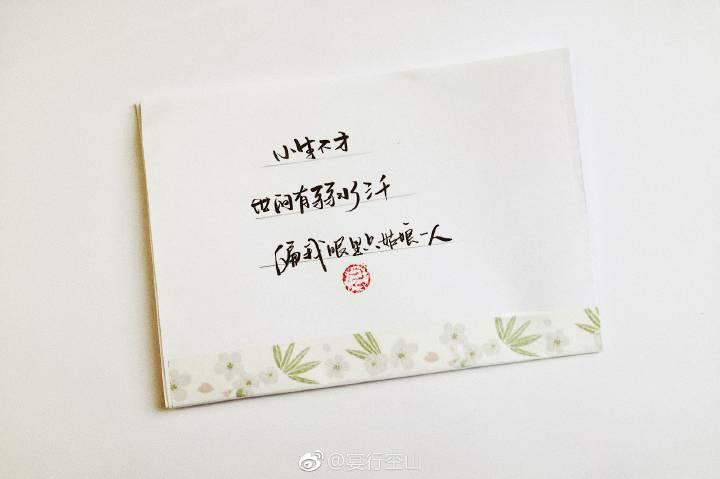 小生不才
世间有弱水三千
偏我眼里只姑娘一人
@宴行空山